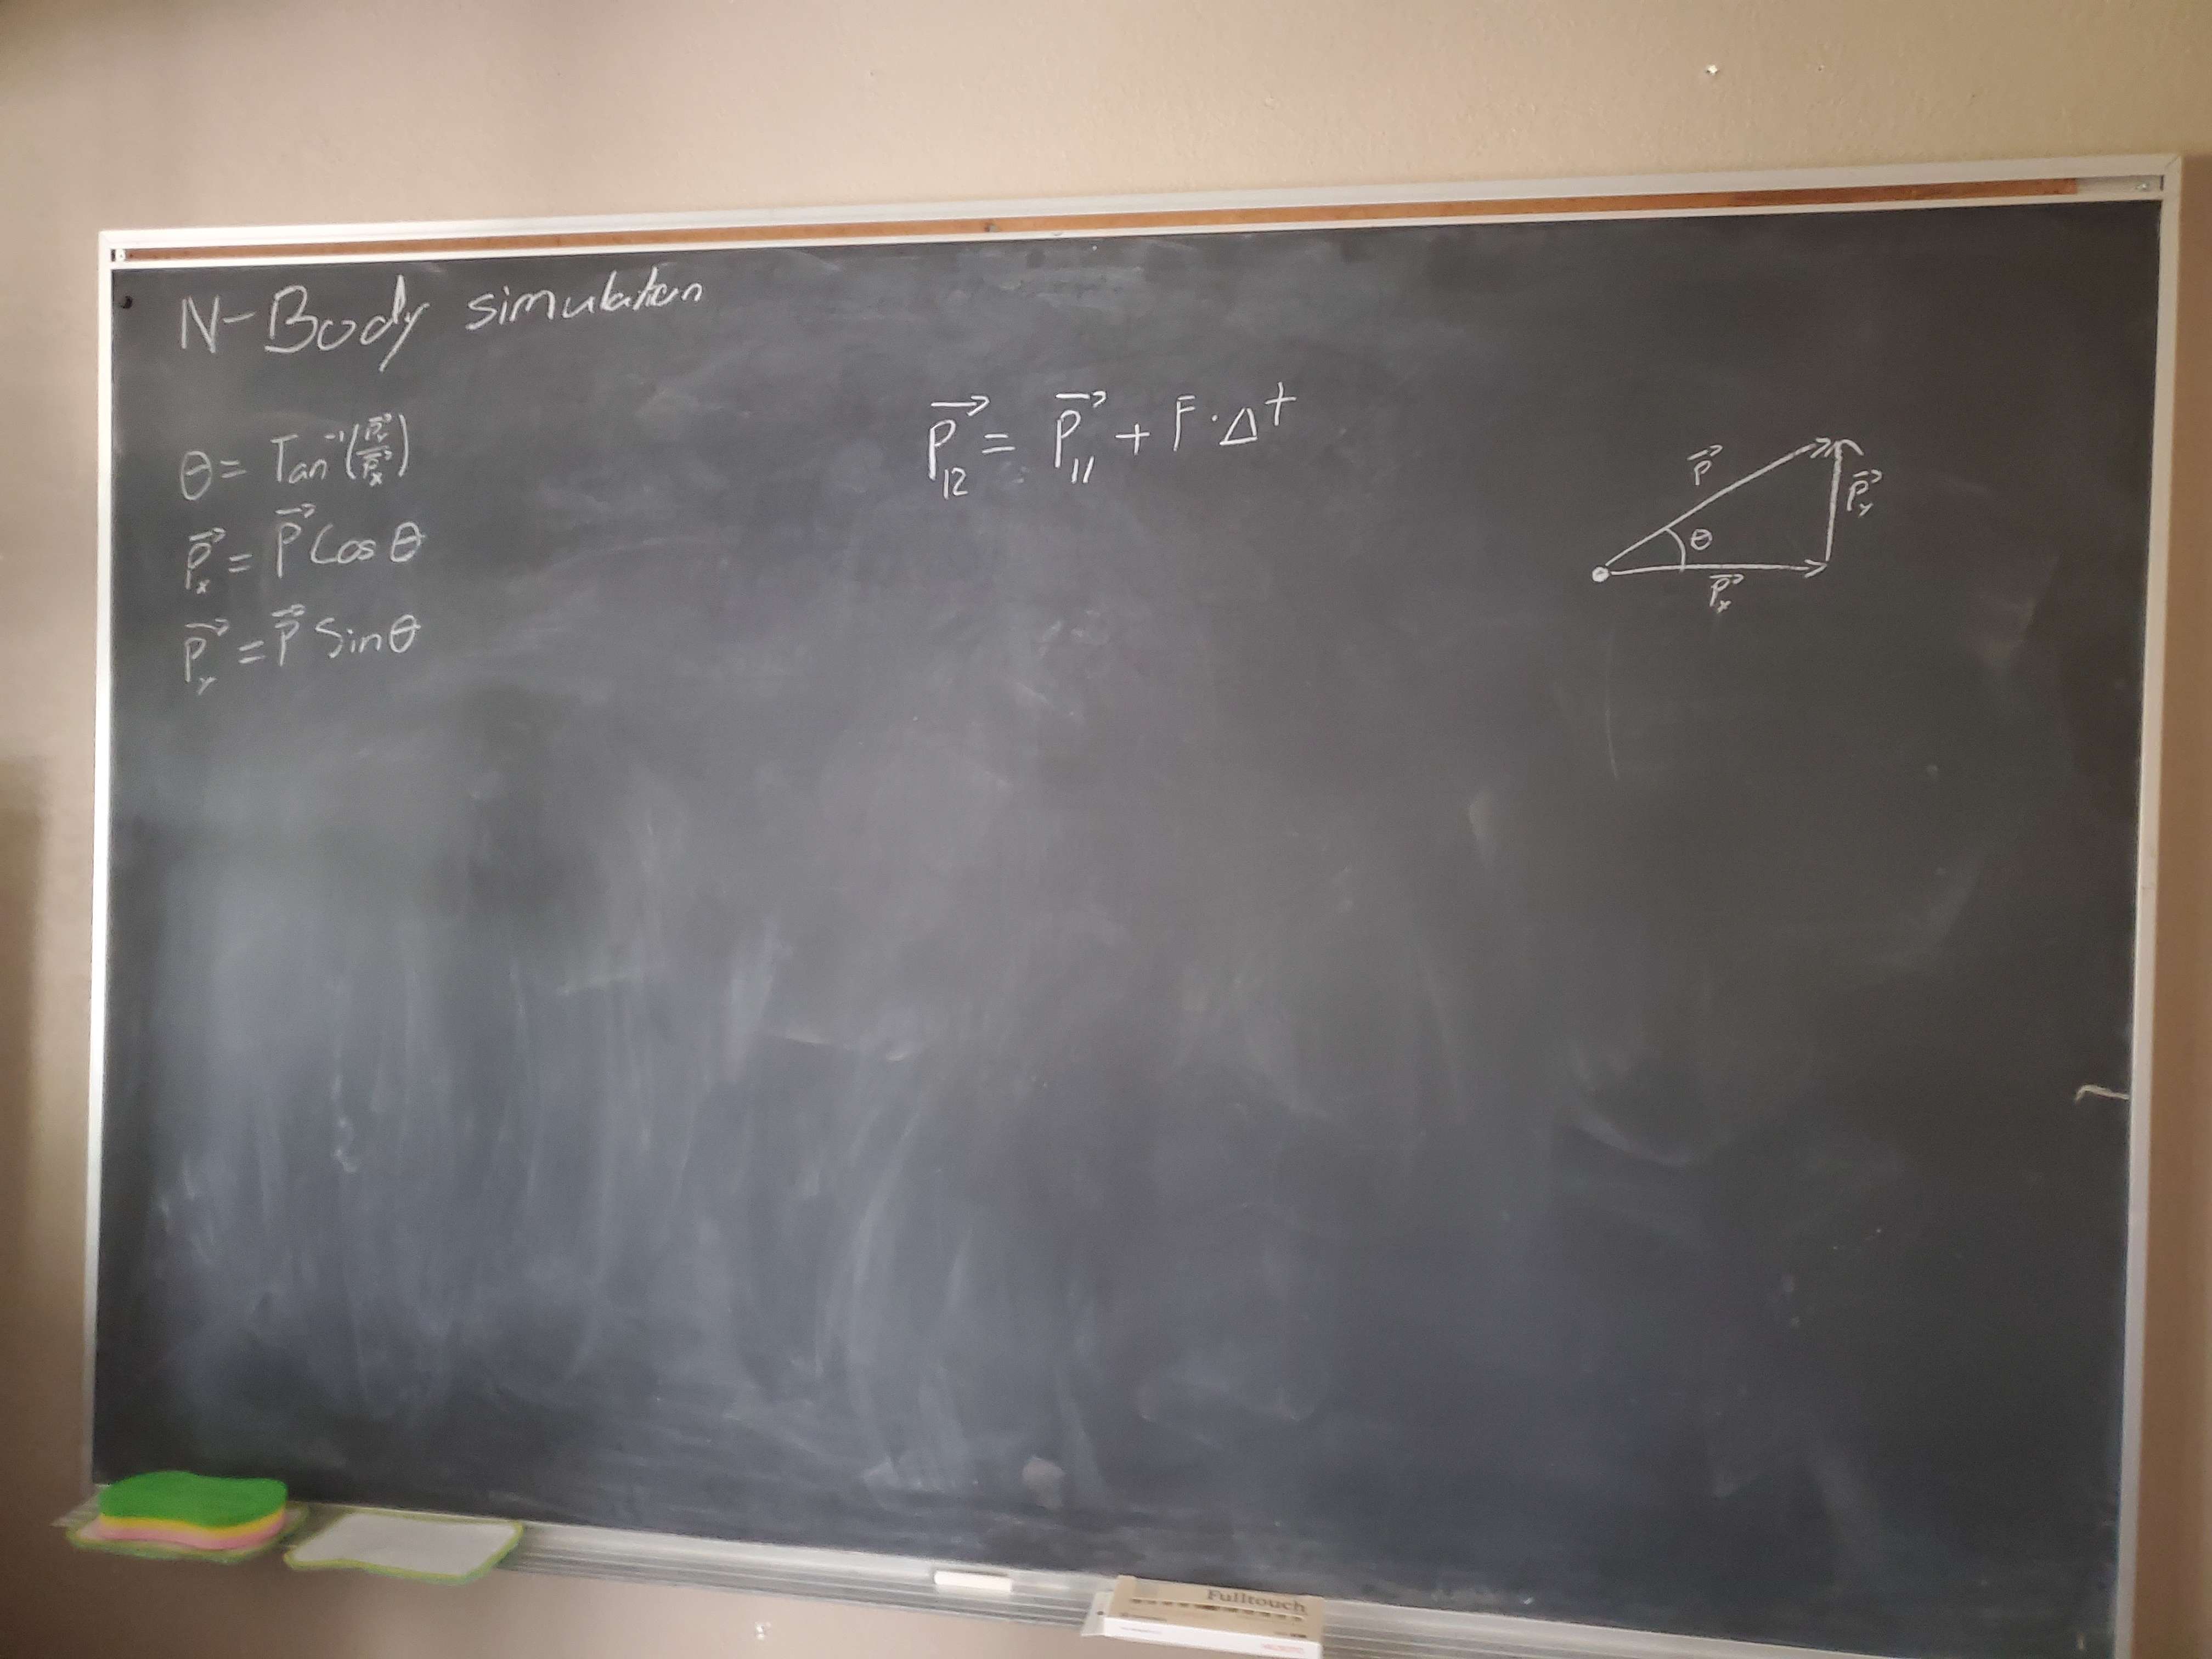 N-Body simulation
θ = Tan⁻¹(p⃗_y / p⃗_x)
p⃗_x = p⃗ Cos θ
p⃗_y = p⃗ Sin θ
p⃗_12 = p⃗_11 + F · Δt
p⃗
θ
p⃗_y
p⃗_x
Fulltouch